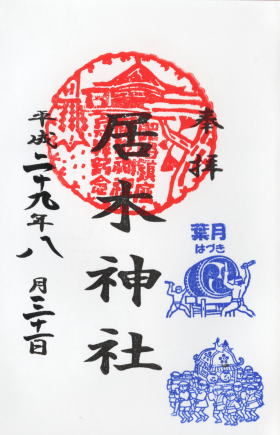 奉拝
居木神社
平成二十九年八月三十一日
葉月
はづき